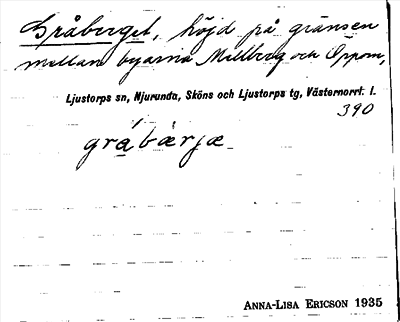 Gråberget, höjd på gränsen
mellan byarna Mellberg och Öppom,
Ljustorps sn, Njurunda, Sköns och Ljustorps tg, Västernorrl. l.
390
gråbærjæ
ANNA-LISA ERICSON 1935